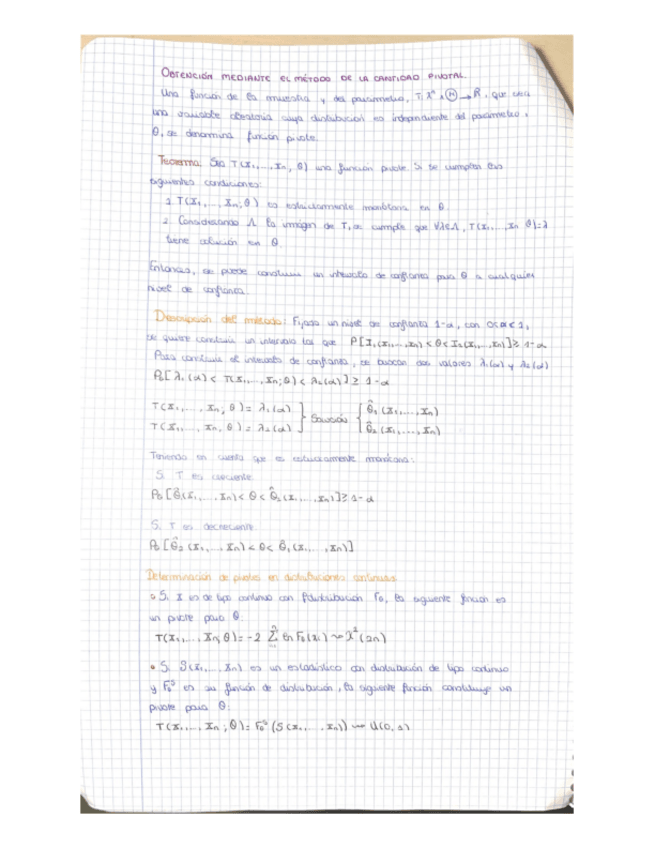 OBTENCIÓN MEDIANTE EL MÉTODO DE LA CANTIDAD PIVOTAL.
Una función de la muestra y del parámetro, T: Xⁿ x Ⓗ → R, que sea
una variable aleatoria cuya distribución es independiente del parámetro,
θ, se denomina función pivote.
Teorema: Sea T(X₁,...,Xn, θ) una función pivote. Si se cumplen las
siguientes condiciones:
1. T(X₁,...,Xn; θ) es estrictamente monótona en θ.
2. Considerando Λ la imagen de T, se cumple que ∀λ∈Λ, T(X₁,...,Xn θ)=λ
tiene solución en θ.
Entonces, se puede construir un intervalo de confianza para θ a cualquier
nivel de confianza.
Descripción del método: Fijado un nivel de confianza 1-α, con 0<α<1,
se quiere construir un intervalo tal que P[I₁(X₁,...,Xn) < θ < I₂(X₁,...,Xn)] ≥ 1-α
Para construir el intervalo de confianza, se buscan dos valores λ₁(α) y λ₂(α)
Pθ[λ₁(α) < T(X₁,...,Xn; θ) < λ₂(α)] ≥ 1-α
T(X₁,...,Xn, θ) = λ₁(α) } Solución { θ̂₁(X₁,...,Xn)
T(X₁,...,Xn, θ) = λ₂(α) } { θ̂₂(X₁,...,Xn)
Teniendo en cuenta que es estrictamente monótona:
Si T es creciente
Pθ[θ̂₁(X₁,...,Xn) < θ < θ̂₂(X₁,...,Xn)] ≥ 1-α
Si T es decreciente
Pθ[θ̂₂(X₁,...,Xn) < θ < θ̂₁(X₁,...,Xn)]
Determinación de pivotes en distribuciones continuas
• Si X es de tipo continuo con f.distribución Fθ, la siguiente función es
un pivote para θ:
T(X₁,...,Xn; θ) = -2 Σ ln Fθ(xi) ~> X²(2n)
• Si S(X₁,...,Xn) es un estadístico con distribución de tipo continuo
y Fθˢ es su función de distribución, la siguiente función constituye un
pivote para θ:
T(X₁,...,Xn; θ) = Fθˢ(S(X₁,...,Xn)) ~> U(0,1)